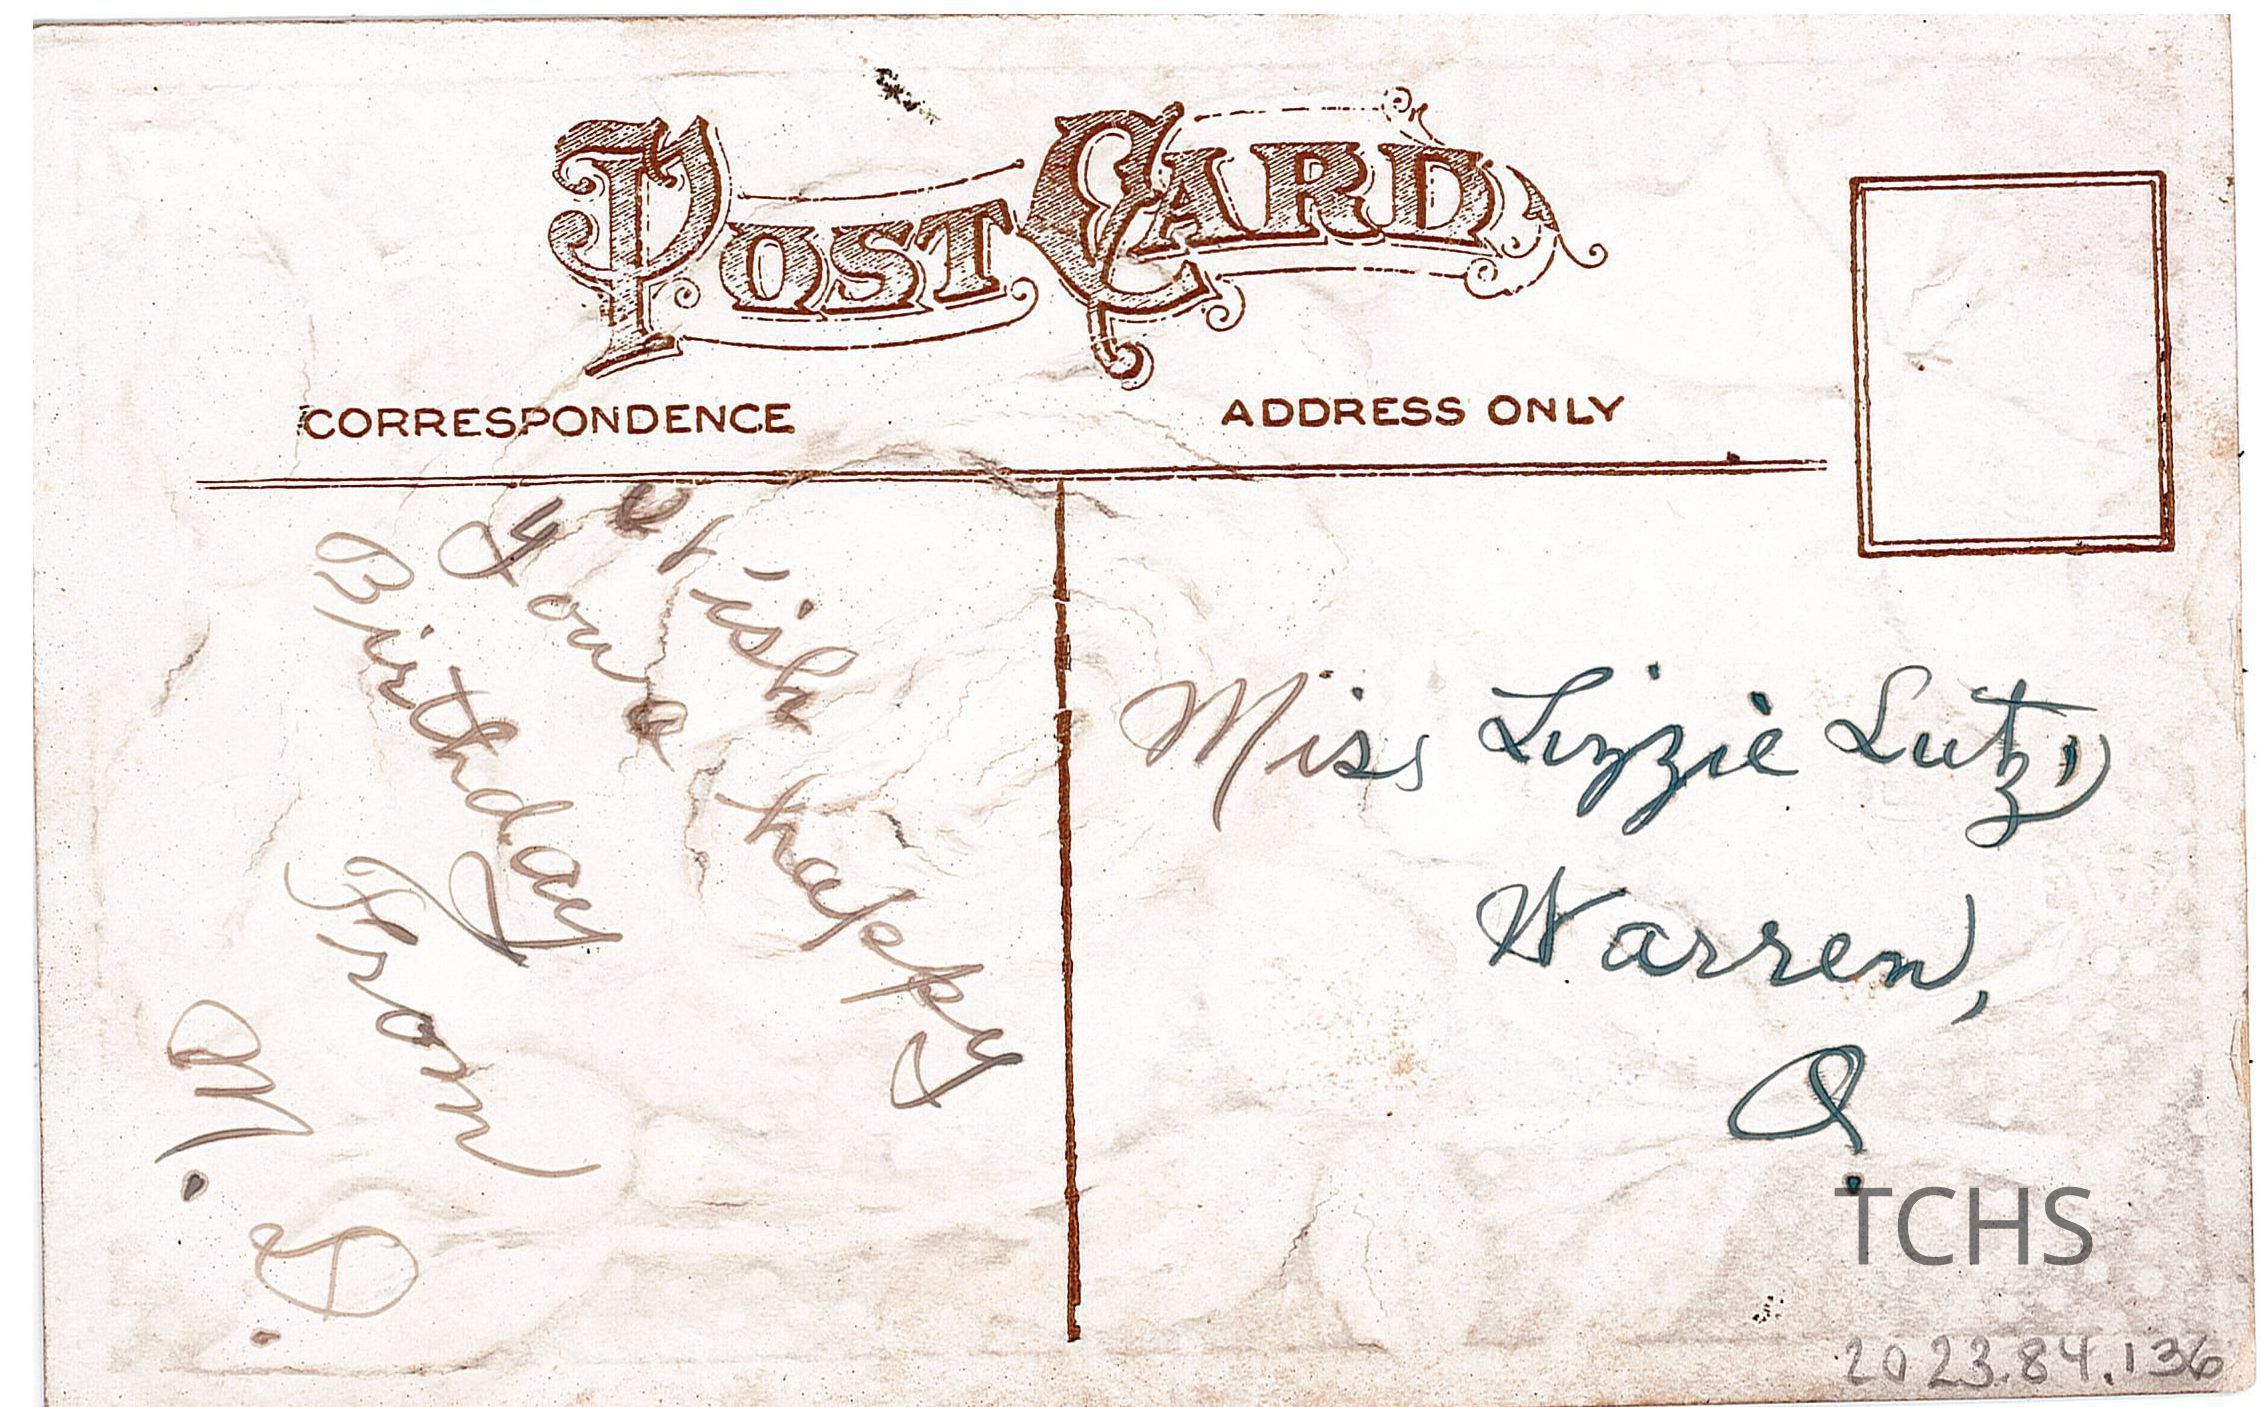 POST CARD
CORRESPONDENCE
ADDRESS ONLY
Wish
you a happy
Birthday
From
M. D.
Miss Lizzie Lutz,
Warren,
O.
TCHS
2023.84.136